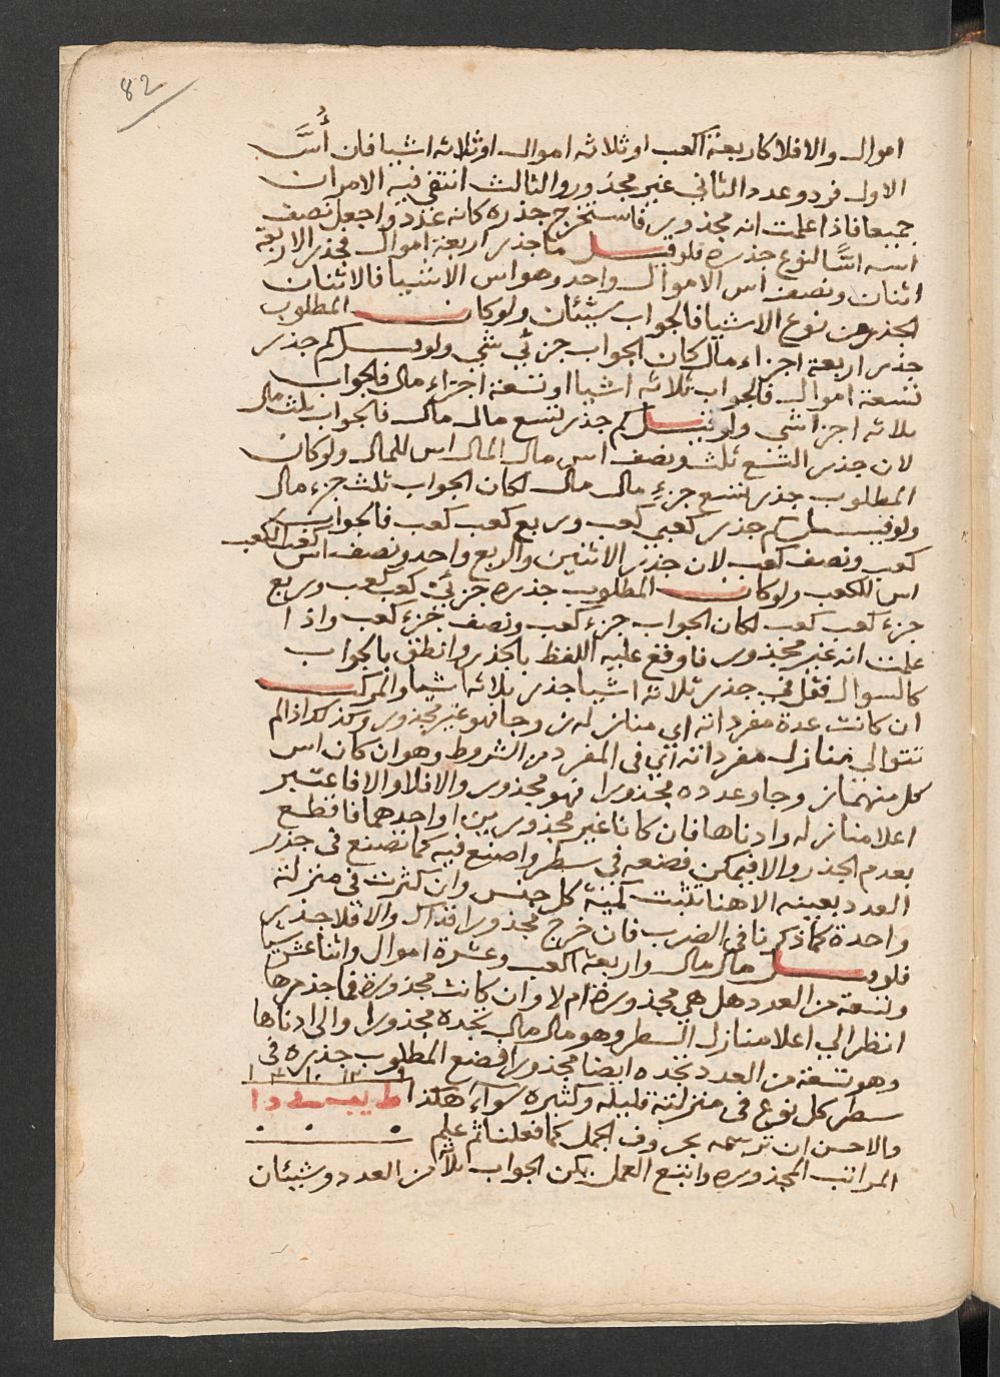 82
اموال والا فلا كاربعة اكعب او ثلاثه اموال او ثلاثه اشيا فان أُسَّ
الاول فرد وعدد الثاني غير مجذور والثالث انتفي فيه الامران
جميعا فاذا علمت انه مجذور فاستخرج جذره كانه عدد واجعل نصف
اسه اسًّا لنوع جذره فلو قيل ما جذر اربعة اموال فجذر الاربعة
اثنان ونصف اس الاموال واحد وهو اس الاشيا فالاثنان
الجذر من نوع الاشيا فالجواب شيئان ولو كان المطلوب
جذر اربعة اجزاء مال كان الجواب جزئي شي ولو قيل كم جذر
تسعة اموال فالجواب ثلاثه اشيا او تسعة اجزاء مال فالجواب
ثلاثه اجزا شي ولو قيل كم جذر تسع مال مال فالجواب ثلث مال
لان جذر التسع ثلث ونصف اس مال المال اس للمال ولو كان
المطلوب جذر تسع جزء مال مال لكان الجواب ثلث جزء مال
ولو قيل كم جذر كعبي كعب وربع كعب كعب فالجواب
كعب ونصف كعب لان جذر الاثنين والربع واحد ونصف اس كعب الكعب
اس للكعب ولو كان المطلوب جذره جزئي كعب كعب وربع
جزء كعب كعب لكان الجواب جزء كعب ونصف جزء كعب واذا
علمت انه غير مجذور فاوقع عليه اللفظ بالجذر وانطق بالجواب
كالسوال فقل في جذر ثلاثه اشيا جذر ثلاثه اشيا والمركب
ان كانت عدة مفرداته اي منازله زوجا فهو غير مجذور وكذلك اذا لم
تتوالي منازل مفرداته اي في المفرد من الشروط وهو ان كان اس
كل منهما زوجا وعدده مجذورا فهو مجذور والا فلا والا فاعتبر
اعلا منازله وادناها فان كانا غير مجذورين او احدهما فاقطع
بعدم الجذر والا فيمكن فضعه في سطر واصنع فيه كما تصنع في جذر
العدد بعينه الا هنا تثبت كمية كل جنس وان كثرت في منزلته
واحدة كما ذكرنا في الضرب فان خرج مجذورا فذاك والا فلا جذر
فلو قيل مال مال واربعة اكعب وعشرة اموال واثنا عشر شيا
وتسعة من العدد هل هي مجذورة ام لا وان كانت مجذورة فما جذرها
انظر الي اعلا منازل السطر وهو مال مال تجده مجذورا والي ادناها
وهو تسعة من العدد تجده ايضا مجذورا فضع المطلوب جذره في
سطر كل نوع في منزلته قليله وكثيره سواء هكذا
والاحسن ان ترسمه بحروف الجمل كما فعلنا ثم علم
المراتب المجذوره واتبع العمل يكن الجواب ثلاثا من العدد وشيئان